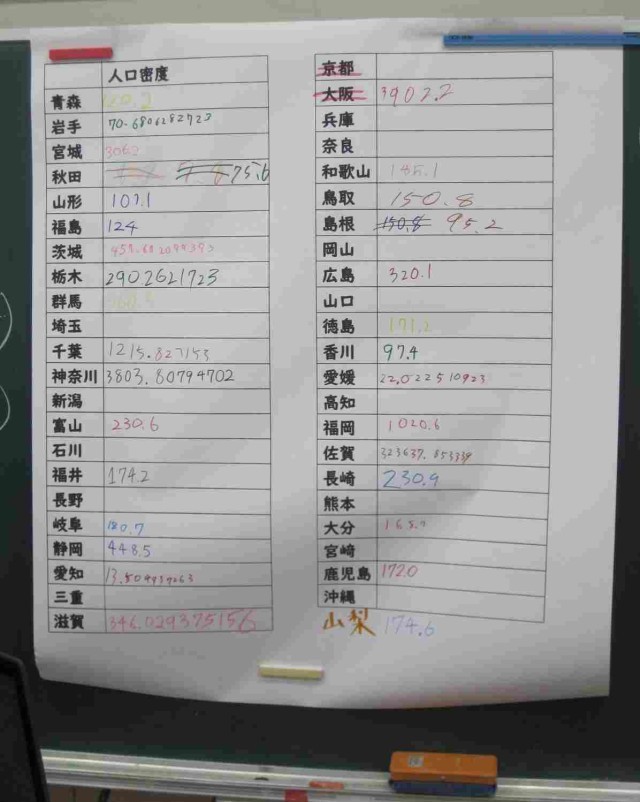 人口密度
青森
岩手 70.6806282723
宮城
秋田 75.6
山形 107.1
福島 124
茨城
栃木 2902621723
群馬
埼玉
千葉 1215.827153
神奈川 3803.80794702
新潟
富山 230.6
石川
福井 174.2
長野
岐阜 180.7
静岡 448.5
愛知
三重
滋賀 346.029375156
京都
大阪 3902.2
兵庫
奈良
和歌山 185.1
鳥取 150.8
島根 150.8 95.2
岡山
広島 320.1
山口
徳島 171.2
香川 97.4
愛媛 22.022510923
高知
福岡 1020.6
佐賀 323637.853339
長崎 230.9
熊本
大分
宮崎
鹿児島 172.0
沖縄
山梨 174.6